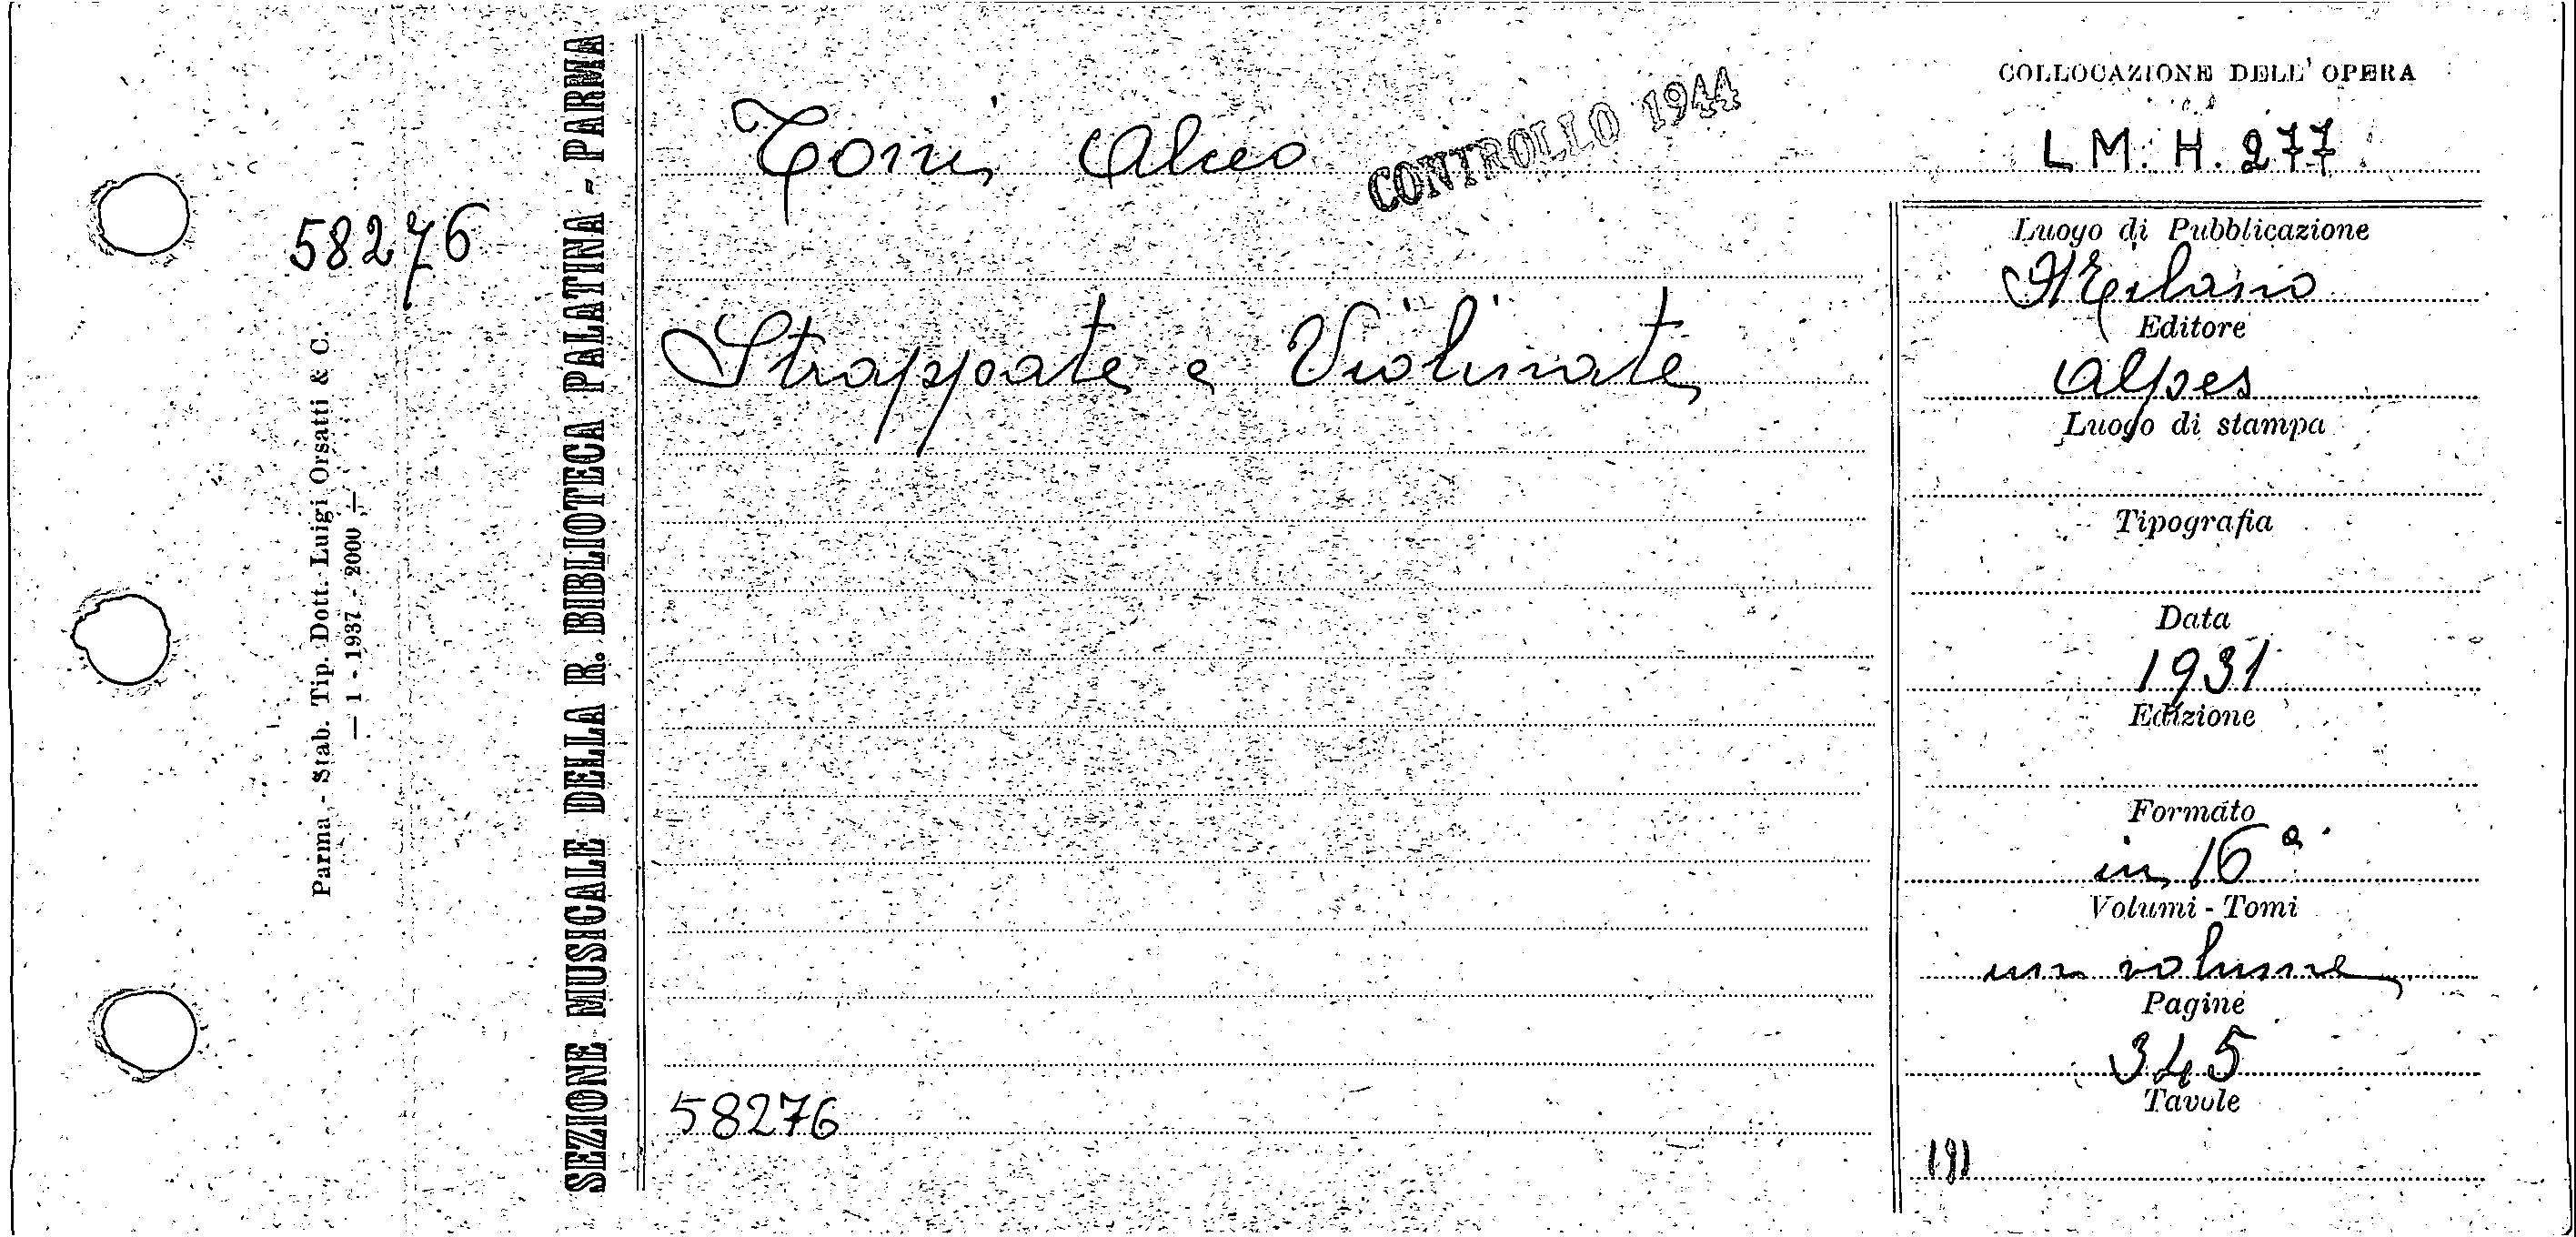 COLLOCAZIONE DELL' OPERA
L M. H. 277
Toni Alceo
CONTROLLO 1944
58276
Strappate e Violinate
Luogo di Pubblicazione
Milano
Editore
Alpes
Luogo di stampa
Tipografia
Data
1931
Edizione
Formato
in 16º
Volumi - Tomi
un volume
Pagine
345
Tavole
191
58276
SEZIONE MUSICALE DELLA R. BIBLIOTECA PALATINA - PARMA
Parma - Stab. Tip. Dott. Luigi Orsatti & C.
— 1 - 1937 - 2000 —